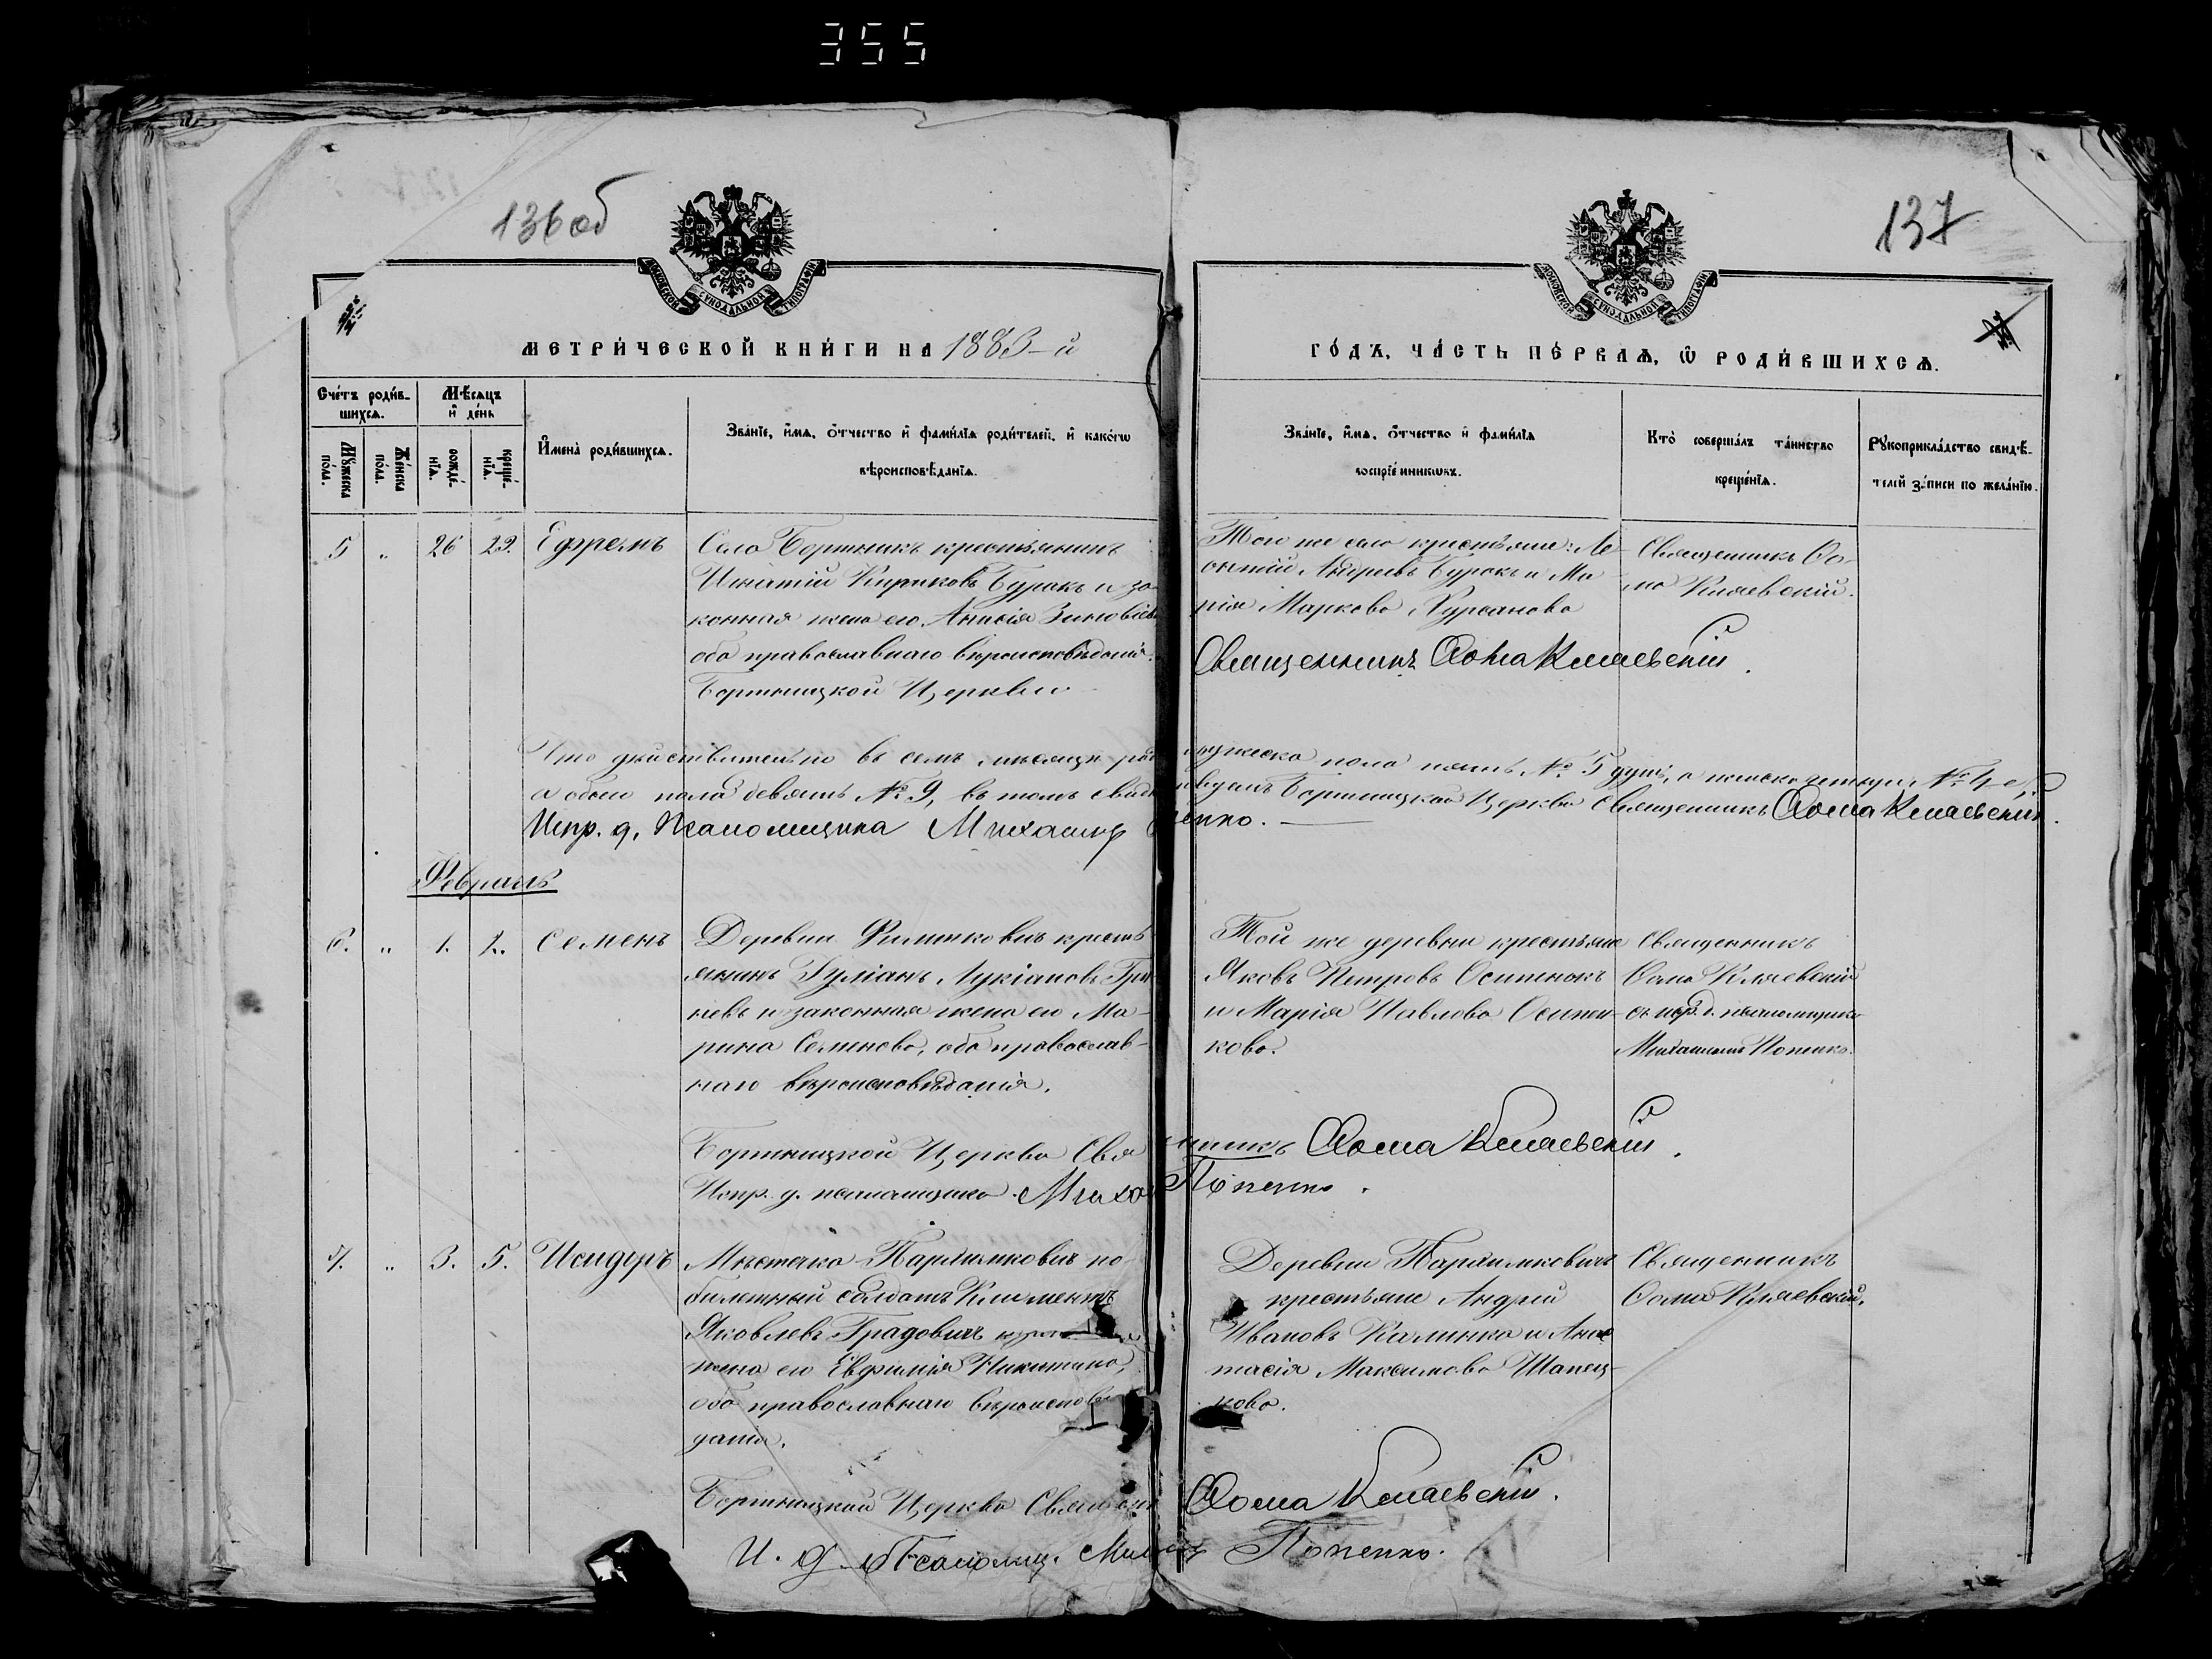 355
136 об
137
МОСКОВСКОЙ СУНОДАЛЬНОЙ ТИПОГРАФІИ
МОСКОВСКОЙ СУНОДАЛЬНОЙ ТИПОГРАФІИ
МЕТРИ́ЧЕСКОЙ КНИ́ГИ НА 1883-й
ГО́ДЪ, ЧА́СТЬ ПЕ́РВАѦ, Ѿ РОДИ́ВШИХСѦ.
Сче́тъ роди́в-
шихсѧ.
Мѣсѧцъ
и҆ де́нь
Мꙋ́жеска
по́ла.
Же́нска
по́ла.
рожде́-
нїѧ.
креще́-
нїѧ.
И҆мена̀ роди́вшихсѧ.
Зва́нїе, и҆́мѧ, ѻ҆́тчество и҆ фамѝлїѧ роди́телей, и҆ како́гѡ
вѣроисповѣ́данїѧ.
Зва́нїе, и҆́мѧ, ѻ҆́тчество и҆ фамѝлїѧ
воспрїе́мникѡвъ.
Кто̀ соверша́лъ та́инство
креще́нїѧ.
Рꙋкоприкла́дство свидѣ́-
телей за́писи по жела́нїю.
5 " 26 29. Ефремъ
Села Бортникъ крестьянинъ
Игнатій Кириковъ Буракъ и за-
конная жена его Анисія Зиновіева
оба православнаго вѣроисповѣданія.
Бортницкой Церкви
Того же села крестьяне: Ле-
онтій Андреевъ Буракъ и Ма-
рія Маркова Хурсанова
Священникъ Ѳо-
ма Кляевскій.
Священникъ Ѳома Кляевскій.
Что дѣйствительно въ семъ мѣсяцѣ мужеска пола пять № 5 душъ, а женска четыри № 4 е,
а обоего пола девять № 9, въ томъ Бортницкой Церкви Священникъ Ѳома Кляевскій.
Испр. д. Псаломщика Михаилъ
Февраль
6. " 1. 2. Семенъ
Деревни Филитковичъ кресть
янинъ Гуліанъ Лукіановъ Гри
невъ и законная жена его Ма-
рина Семенова, оба православ-
наго вѣроисповѣданія.
Той же деревни крестьяне
Яковъ Петровъ Осипенокъ
и Марія Павлова Осипен-
кова.
Священникъ
Ѳома Кляевскій
съ испр. д. псаломщика
Михаиломъ Попенко.
Бортницкой Церкви Священникъ Ѳома Кляевскій.
Испр. д. псаломщика Михаилъ Попенко.
7. " 3. 5. Исидоръ
Мѣстечка Паричинковичъ по
билетный солдатъ Климентъ
Яковлевъ Градовичъ
жена его Евфимія Никитина,
оба православнаго вѣроисповѣ
данія.
Деревни
крестьяне Андрей
Ивановъ Калинка и Анас
тасія Максимова Шапец-
кова.
Священникъ
Ѳома Кляевскій.
Бортницкой Церкви Священникъ Ѳома Кляевскій.
И. д. Псаломщ. Михаилъ Попенко.